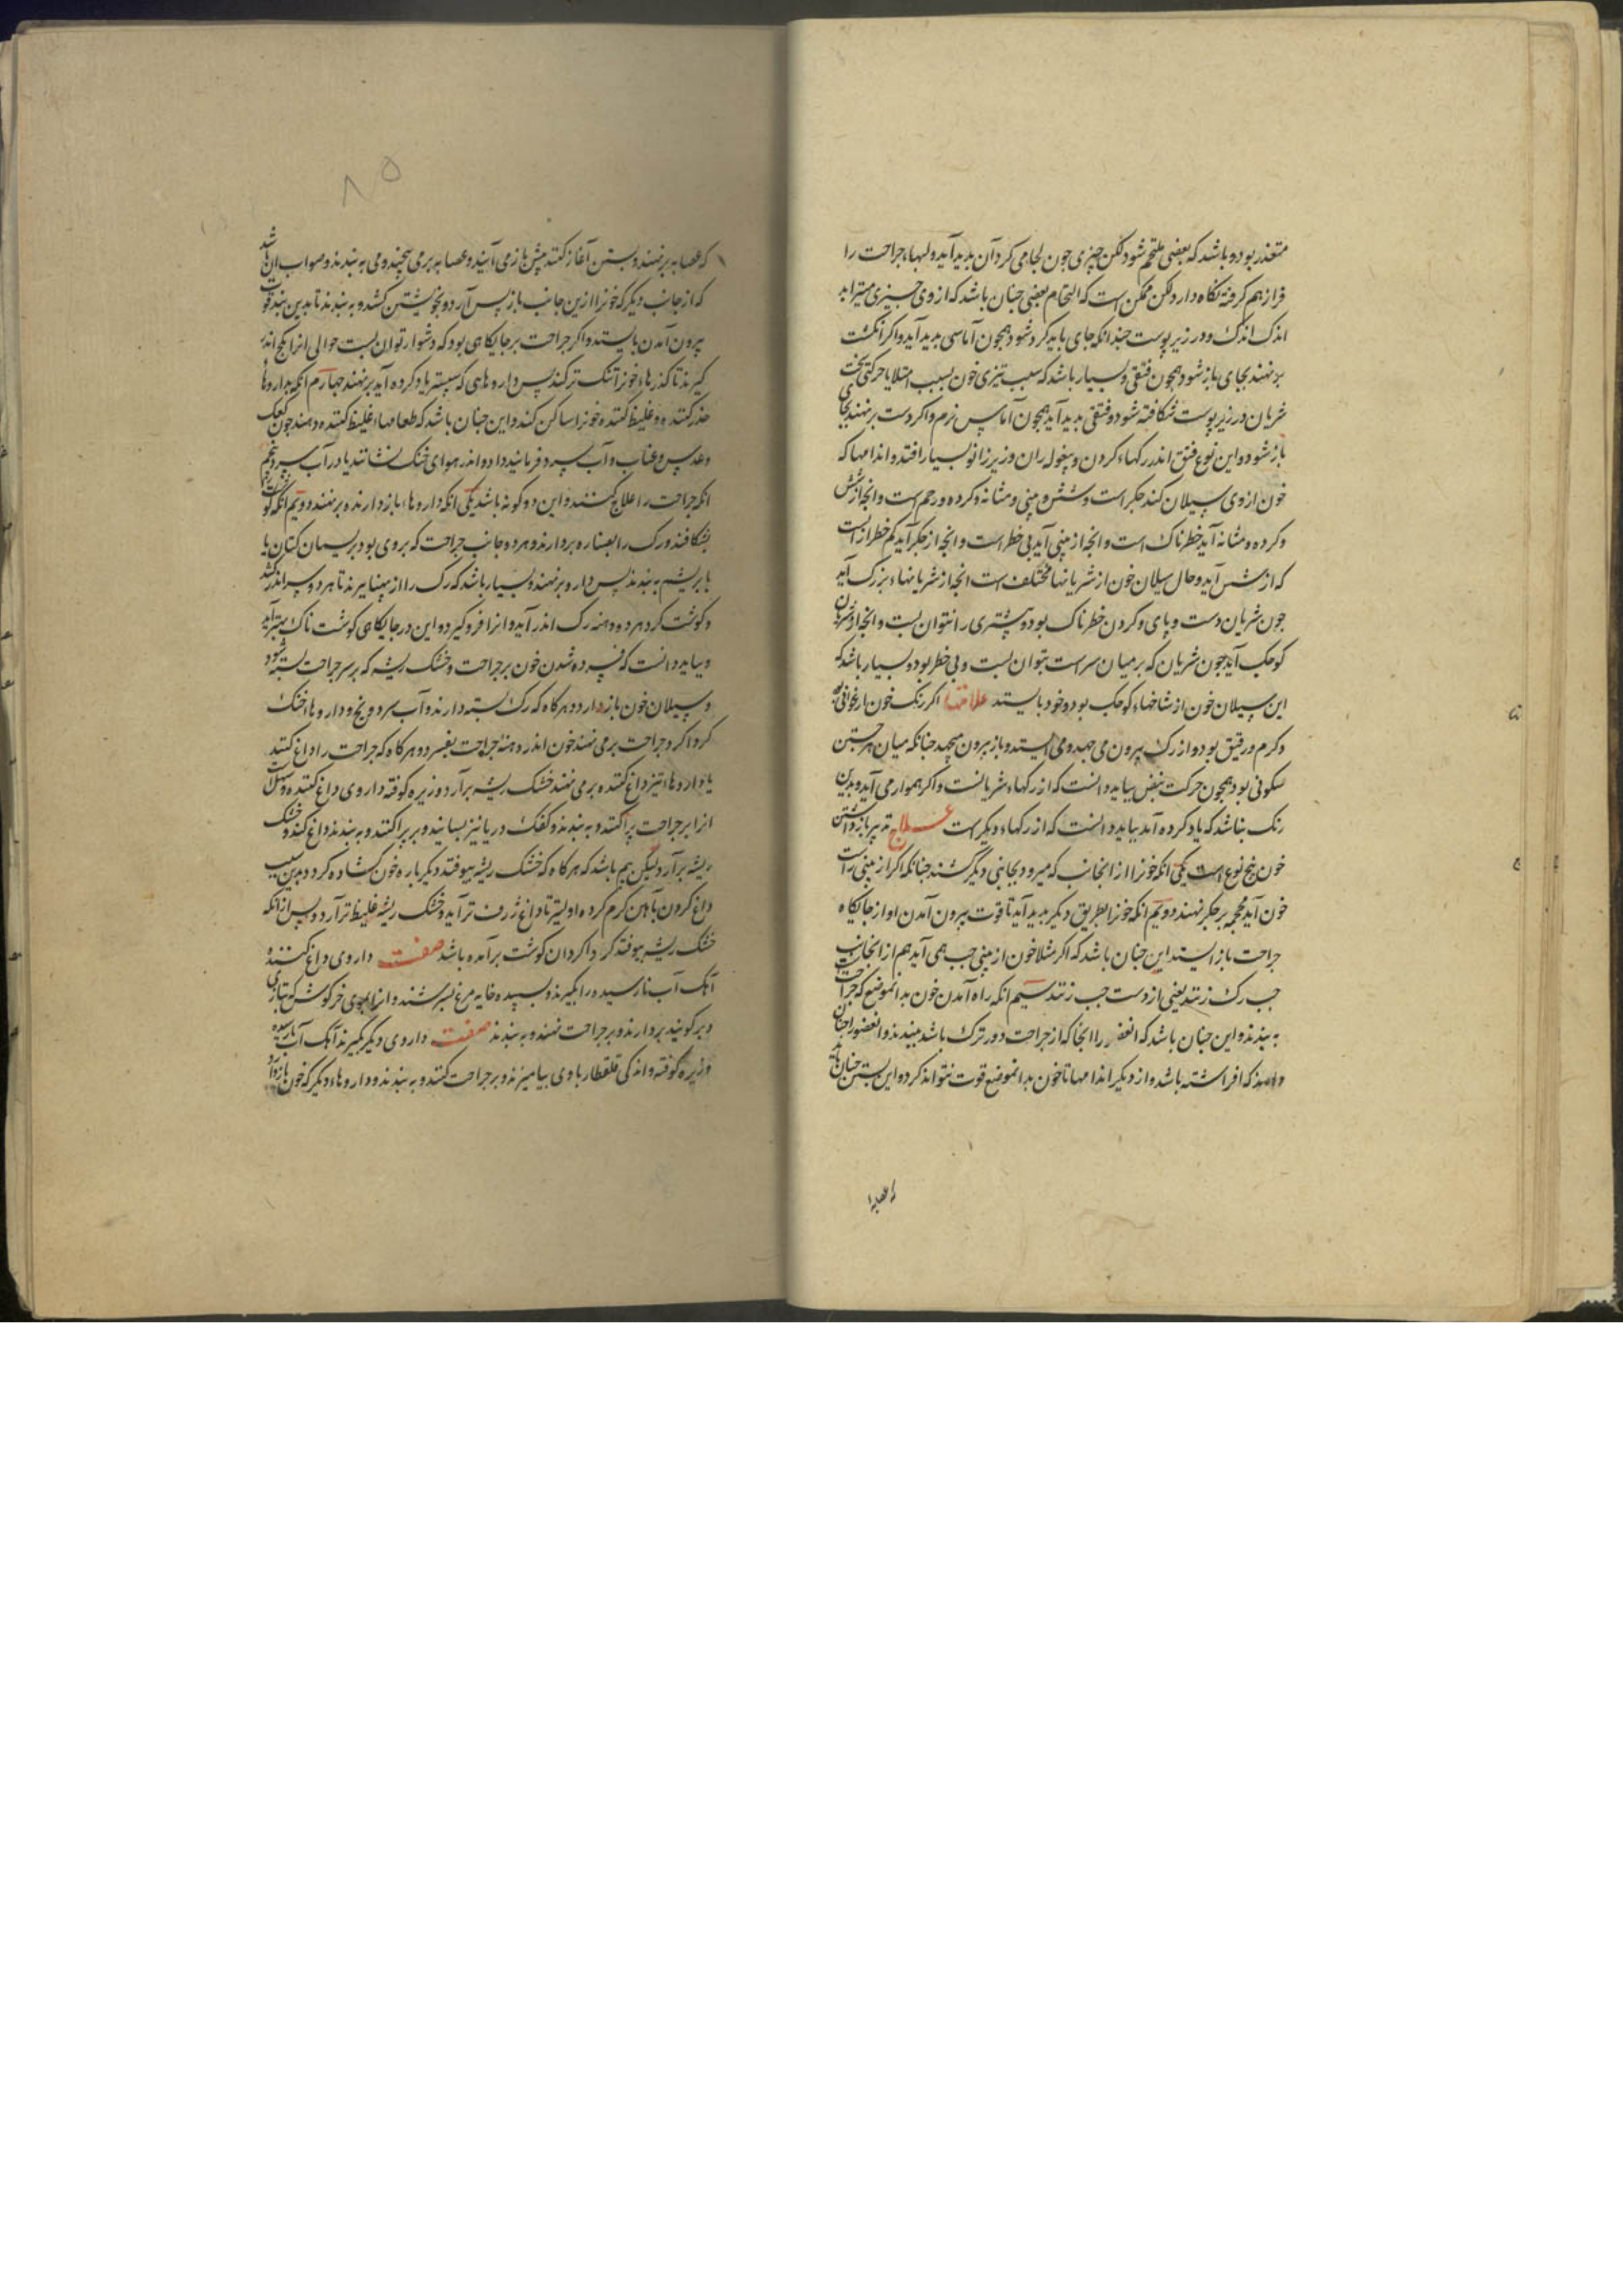 متعذر بود و باشد که بعضی ملتحم شود لکن چیزی جون لجامی کرد آن بدید آید و لبهاء جراحت را
فراز هم کرفته نکاه دارد لکن ممکن است که التحام بعضی جنان باشد که از وی جیزی میتراید
اندک اندک و در زیر پوست جندانکه جای یابد کرد شود و همجون آماسی بدید آید و اکر انکشت
برنهند بجای بازشود همجون فتقی و بسیار باشد که سبب تیزی خون بسبب امتلا یا حرکتی سخت
شریان در زیر پوست شکافته شود و فتقی بدید آید همجون آماس نرم و اکر دست برنهند بجای
بازشود و این نوع فتق اندر رکهاء کردن و بیغوله ران و زیر زانو بسیار افتد و اندامها که
خون از وی سیلان کند جکر است و شش و بینی و مثانه و کرده و رحم است و انجه از شش
و کرده و مثانه آید خطرناک است و انجه از بینی آید بی خطر است و انجه از جکر آید کم خطر از آنست
که از شش آید و حال سیلان خون از شریانها مختلف است انجه از شریانهاء بزرک آید
جون شریان دست و پای و کردن خطرناک بود و بیشتری را نتوان بست و انجه از شریان
کوجک آید جون شریان که بر میان سر است بتوان بست و بی خطر بود و بسیار باشد که
این سیلان خون از شاخهاء کوجک بود و خود بایستد علامتها اکر رنک خون ارغوانی بود
و کرم و رقیق بود و از رک بیرون می جهد و می ایستد و باز بیرون میجهد جنانکه میان هر جستن
سکونی بود همجون حرکت نبض بباید دانست که از رکهاء شریانست و اکر هموار می آید و بدین
رنک نباشد که یاد کرده آمد بباید دانست که از رکهاء دیکر است علاج تدبیر بازداشتن
خون پنج نوع است یکی انکه خونرا از انجانب که میرود بجانبی دیگر کشند جنانکه اکر از بینی راست
خون آید محجمه بر جکر نهند دویم انکه خونرا طریق دیکر بدید آید تا قوت بیرون آمدن او از جایکاه
جراحت بازایستد این جنان باشد که اکر مثلا خون از بینی جب همی آید هم از انجانب
جب رک زنند یعنی از دست جب زنند سیم انکه راه آمدن خون بدانموضع که جراحت
به بندند و این جنان باشد که انعضو را انجا که از جراحت دورترک باشد ببندند و انعضو را جنان
که افراشته باشد و از دیکر اندامها تا خون بدانموضع قوت نتواند کرد و این بستن جنان باید
که عصابه برنهند و بستن آغاز کنند بیش باز می آیند و عصابه بر می بیجند و می به بندند و صواب ان باشد
که از جانب دیکر که خونرا ازین جانب باز پس آرد و بخویشتن کشد و به بندند تا بدین بند قوت
بیرون آمدن بایستد و اکر جراحت بر جایکاهی بود که دشوار توان بست حوالی انرا بکج اندر
کیرند تا کذرهاء خون تنک تر کند پس داروهایی که سپستر یاد کرده آید برنهند جهارم انکه بداروها
خدر کننده و غلیظ کننده خونرا ساکن کند و این جنان باشد که طعامهاء غلیظ کننده دهند جون کعک
و عدس و عناب و آب سرد فرمایند داد و اندر هوای خنک نشانند یا در آب سرد پنجم
انکه جراحت را علاج کنند و این دو کونه باشد یکی انکه داروهاء بازدارنده برنهند دویم انکه کوشت
بشکافند و رک را بصناره بردارند و هر دو جانب جراحت که بر وی بود بریسمان کتان یا
بابریشم به بندند پس دارو برنهند و بسیار باشد که رک را از پهنا ببرند تا هر دو سر اندر کشد
و کوشت کرد هر دو دهنه رک اندر آید و انرا فرو کیرد و این در جایکاهی کوشت ناک بهتر آید
و بباید دانست که فسرده شدن خون بر جراحت و خشک ریشه که بر سر جراحت بسته شود
و سیلان خون باز دارد و هرکاه که رک بسته دارند و آب سرد و یخ و داروهاء خنک
کرد اکرد جراحت بر می نهند خون اندر دهنه جراحت بفسرد و هرکاه که جراحت را داغ کنند
یا داروهاء تیز داغ کننده بر می نهند خشک ریشه برآرد و زیره کوفته داروی داغ کننده و سهل است
انرا بر جراحت پراکنند و به بندند و کفک دریا نیز بسایند و بر پراکنند و به بندند داغ کند و خشک
ریشه برآرد لیکن بیم باشد که هرکاه که خشک ریشه بیوفتد دیکر باره خون کشاده کردد بدین سبب
داغ کردن بآهن کرم کرده اولیتر تا داغ ژرف تر آید و خشک ریشه غلیظ تر آرد و پس از انکه
خشک ریشه بیوفتد کرداکرد ان کوشت برآمده باشد صفت داروی داغ کننده
آهک آب نارسیده را بکیرند و بسپیده خایه مرغ بسرشند و انرا بموی خرکوش که بتازی
وبر کویند بردارند و بر جراحت نهند و به بندند صفت داروی دیکر بکیرند آهک آب نارسیده
و زیره کوفته و اندکی قلقطار با وی بیامیزند و بر جراحت کنند و به بندند و داروهاء دیکر که خون بازدارد